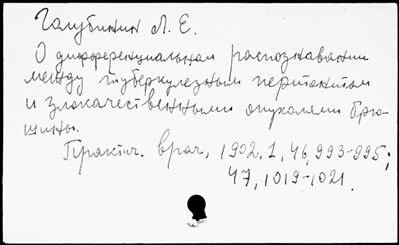 Голубинин Л. Е.
О дифференциальном распознавании
между туберкулезным перитонитом
и злокачественными опухолями брю-
шины.
Практич. врач, 1902, 1, 46, 993-995;
47, 1019-1021.